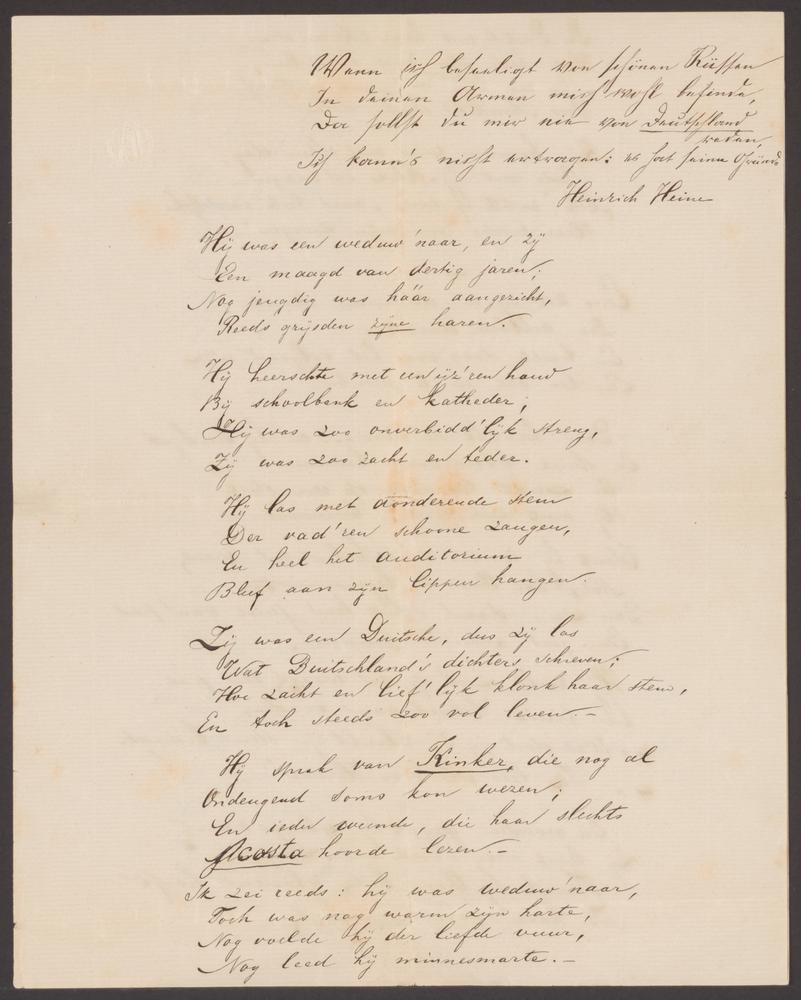 Wenn ich beseeligt von schönen Küssen
In deinen Armen mich wohl befinde,
Da sollst du mir nie von Deutschland
reden,
Ich kann's nicht ertragen: es hat seine Gründe
Heinrich Heine
Hij was een weduw'naar, en zij
Een maagd van dertig jaren;
Nog jeugdig was háár aangezicht,
Reeds grijsden zijne haren.
Hij heerschte met een ijz'ren hand
Bij schoolbank en katheder;
Hij was zoo onverbidd'lijk streng,
Zij was zoo zacht en teder.
Hij las met donderende stem
Der vad'ren schoone zangen,
En heel het auditorium
Bleef aan zijn lippen hangen.
Zij was een Duitsche, dus zij las
Wat Duitschland's dichters schreven;
Hoe zacht en lief'lijk klonk haar stem,
En toch steeds zoo vol leven. -
Hij sprak van Kinker, die nog al
Ondeugend soms kon wezen;
En ieder weende, die haar slechts
Acosta hoorde lezen. -
Ik zei reeds: hij was weduw'naar,
Toch was nog warm zijn harte,
Nog voelde hij der liefde vuur,
Nog leed hij minnesmarte. -